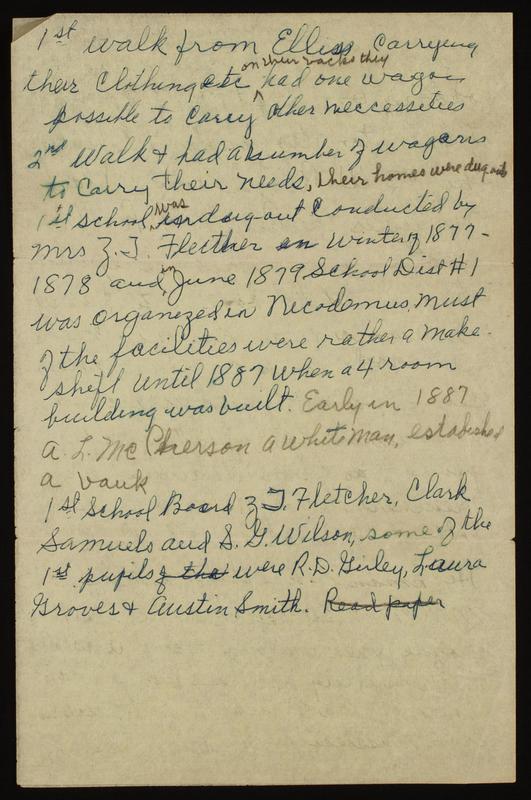 1st walk from Ellis, carrying
their clothing etc on their backs they had one wagon
possible to carry other neccessities
2nd Walk & had a number of wagons
to carry their needs, their homes were dug outs
1st school was in dug-out conducted by
Mrs Z. T. Fletcher in winter of 1877-
1878 and in June 1879 School Dist #1
was organized in Nicodemus, Must
of the facilities were rather a make-
shift until 1887 when a 4 room
building was built. Early in 1887
A. L. McPherson a white man, established
a bank
1st School Board Z. T. Fletcher, Clark
Samuels and S. G. Wilson, some of the
1st pupils of the were R.D. Girley, Laura
Groves & Austin Smith. Read paper